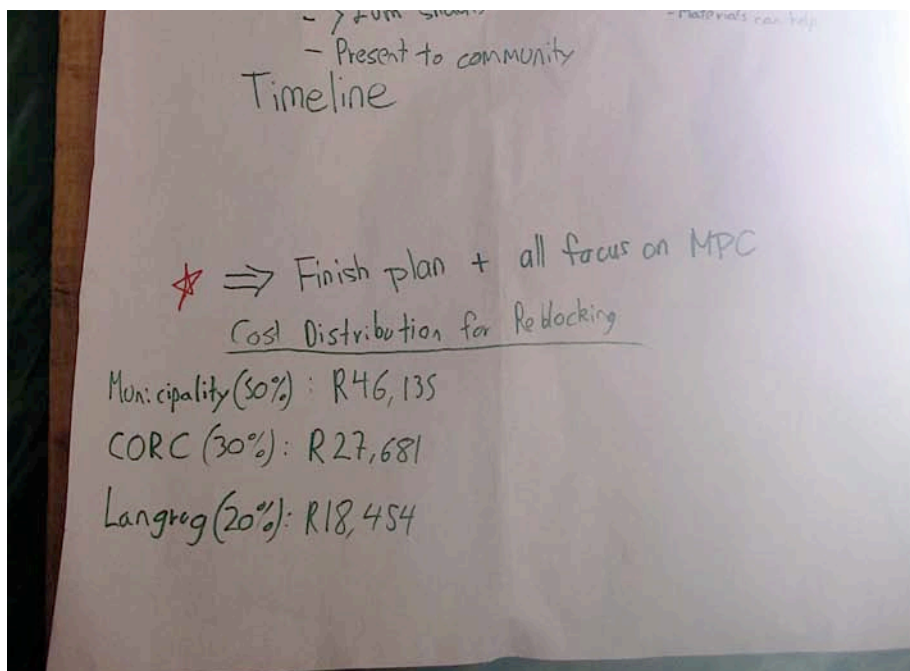 - Materials can help
- Present to community
Timeline
⇒ Finish plan + all focus on MPC
Cost Distribution for Reblocking
Municipality (50%): R46,135
CORC (30%): R27,681
Langrug (20%): R18,454